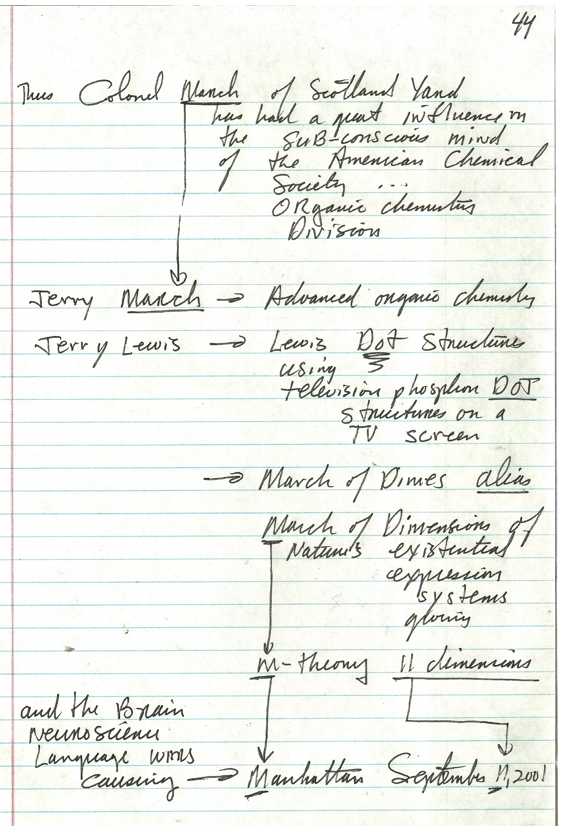 44
Thus Colonel March of Scotland Yard
has had a great influence on
the SUB-conscious mind
of the American Chemical
Society ...
ORganic chemistry
Division
Jerry March → Advanced organic chemistry
Jerry Lewis → Lewis Dot structures
using
television phosphor DOT
structures on a
TV screen
→ March of Dimes alias
March of Dimensions of
Nature's existential
expression
systems
giving
M-theory 11 dimensions
and the Brain
Neuroscience
Language
causing → Manhattan September 11, 2001